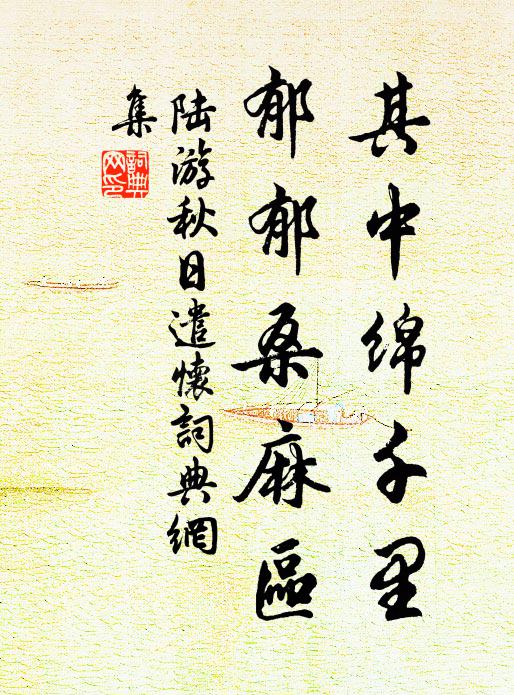 其中绵千里
郁郁桑麻區
陆游秋日遣懷詞典網
集
詞典网印